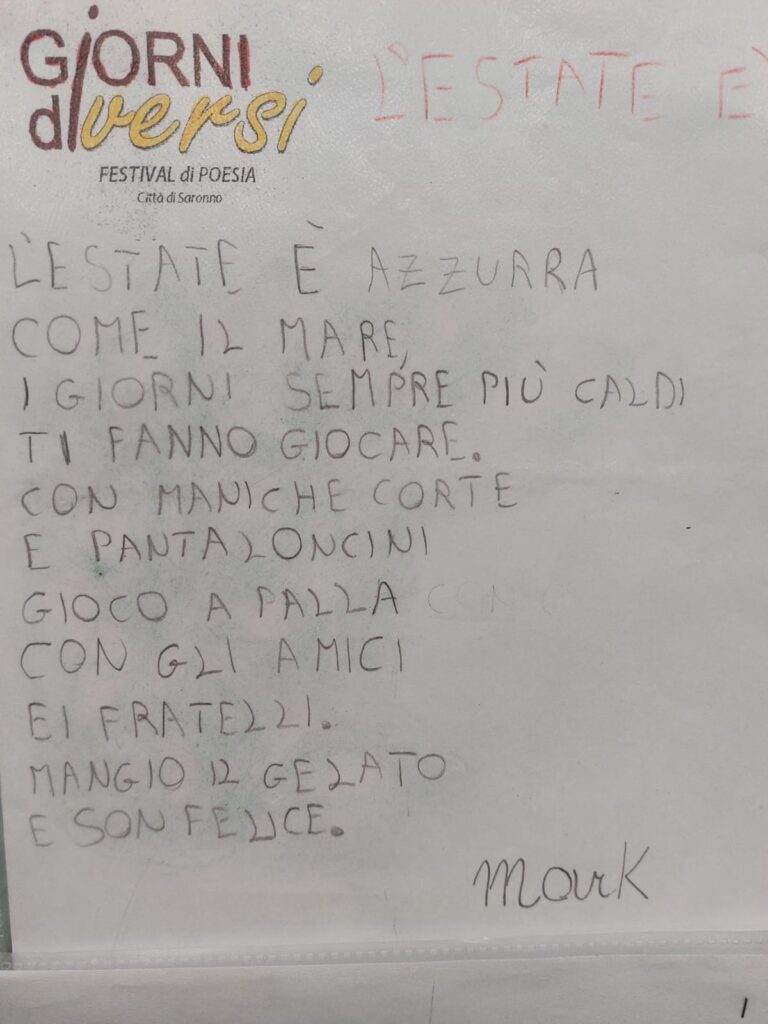 GIORNI
diversi
FESTIVAL di POESIA
Città di Saronno
L'ESTATE E'
L'ESTATE È AZZURRA
COME IL MARE,
I GIORNI SEMPRE PIÙ CALDI
TI FANNO GIOCARE.
CON MANICHE CORTE
E PANTALONCINI
GIOCO A PALLA CON G
CON GLI AMICI
E I FRATELLI.
MANGIO IL GELATO
E SON FELICE.
Mark
1